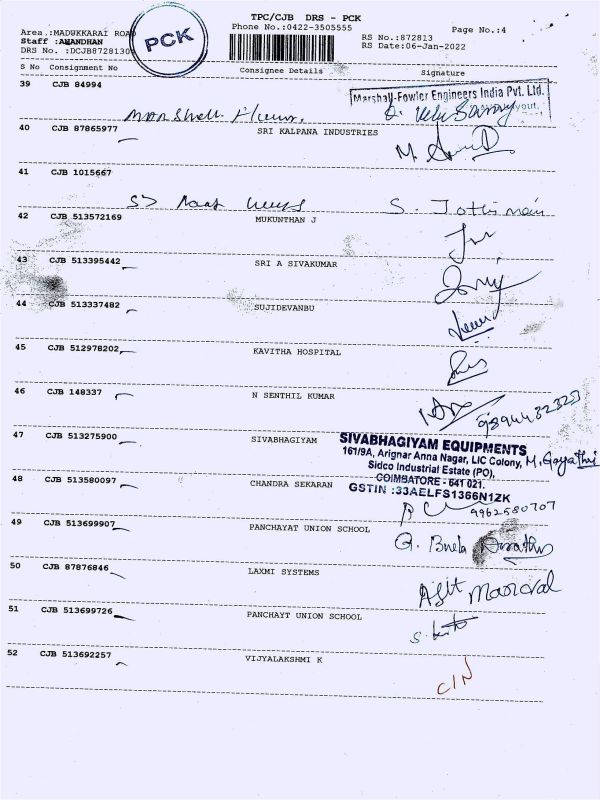 TPC/CJB DRS - PCK
Area :MADUKKARAI ROAD
PCK
Phone No.:0422-3505555
RS No.:872813
Page No.:4
Staff :AWANDHAN
DRS No. :DCJB8728130
RS Date:06-Jan-2022
S No Consignment No Consignee Details Signature
39 CJB 84994
Marshall-Fowler Engineers India Pvt. Ltd.
40 CJB 87865977 SRI KALPANA INDUSTRIES
41 CJB 1015667
S. Jothimani
42 CJB 513572169 MUKUNTHAN J
43 CJB 513395442 SRI A SIVAKUMAR
44 CJB 513337482 SUJIDEVANBU
45 CJB 512978202 KAVITHA HOSPITAL
46 CJB 148337 N SENTHIL KUMAR
9894432323
47 CJB 513275900 SIVABHAGIYAM
SIVABHAGIYAM EQUIPMENTS
161/9A, Arignar Anna Nagar, LIC Colony,
M. Gayathri
Sidco Industrial Estate (PO),
COIMBATORE - 641 021.
GSTIN :33AELFS1366N1ZK
48 CJB 513580097 CHANDRA SEKARAN
9962580707
49 CJB 513699907 PANCHAYAT UNION SCHOOL
50 CJB 87876846 LAXMI SYSTEMS
51 CJB 513699726 PANCHAYT UNION SCHOOL
52 CJB 513692257 VIJYALAKSHMI K
C/N